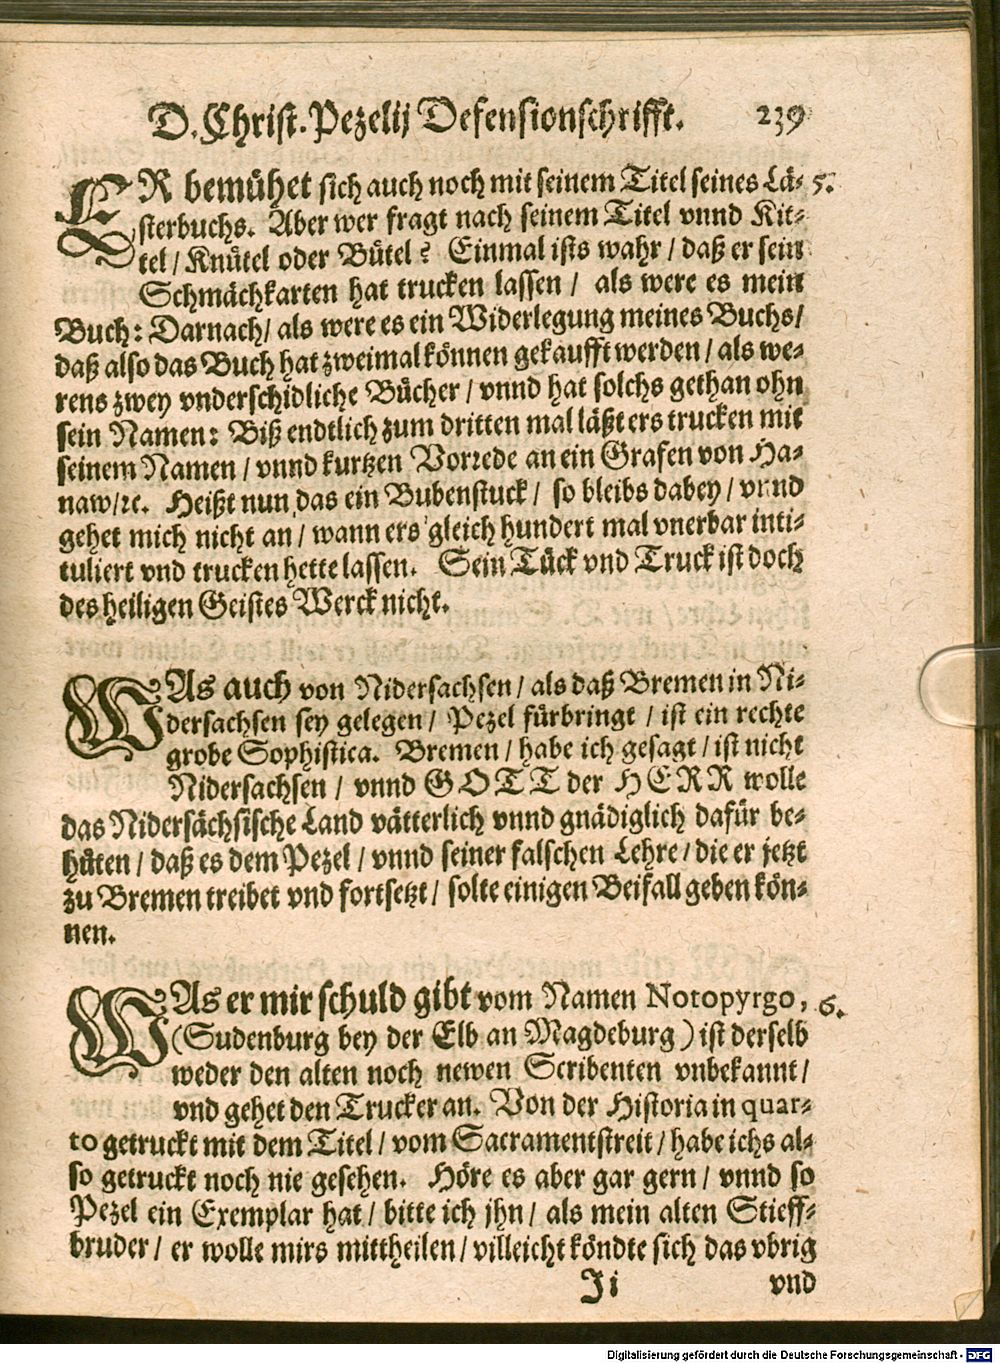 D. Christ. Pezelij Defensionschrifft. 239
ER bemühet sich auch noch mit seinem Titel seines Lä- 5.
sterbuchs. Aber wer fragt nach seinem Titel vnnd Kit-
tel / Knütel oder Bütel? Einmal ists wahr / daß er sein
Schmächkarten hat trucken lassen / als were es mein
Buch: Darnach / als were es ein Widerlegung meines Buchs /
daß also das Buch hat zweimal können gekaufft werden / als we-
rens zwey vnderschidliche Bücher / vnnd hat solchs gethan ohn
sein Namen: Biß endtlich zum dritten mal läßt ers trucken mit
seinem Namen / vnnd kurtzen Vorrede an ein Grafen von Ha-
naw / ꝛc. Heißt nun das ein Bubenstuck / so bleibs dabey / vnnd
gehet mich nicht an / wann ers gleich hundert mal vnerbar inti-
tuliert vnd trucken hette lassen. Sein Tück vnd Truck ist doch
des heiligen Geistes Werck nicht.
WAs auch von Nidersachsen / als daß Bremen in Ni-
dersachsen sey gelegen / Pezel fürbringt / ist ein rechte
grobe Sophistica. Bremen / habe ich gesagt / ist nicht
Nidersachsen / vnnd GOTT der HERR wolle
das Nidersächsische Land vätterlich vnnd gnädiglich dafür be-
hüten / daß es dem Pezel / vnnd seiner falschen Lehre / die er jetzt
zu Bremen treibet vnd fortsetzt / solte einigen Beifall geben kön-
nen.
WAs er mir schuld gibt vom Namen Notopyrgo, 6.
(Sudenburg bey der Elb an Magdeburg) ist derselb
weder den alten noch newen Scribenten vnbekannt /
vnd gehet den Trucker an. Von der Historia in quar-
to getruckt mit dem Titel / vom Sacramentstreit / habe ichs al-
so getruckt noch nie gesehen. Höre es aber gar gern / vnnd so
Pezel ein Exemplar hat / bitte ich jhn / als mein alten Stieff-
bruder / er wolle mirs mittheilen / villeicht köndte sich das vbrig
Ji vnd
Digitalisierung gefördert durch die Deutsche Forschungsgemeinschaft - DFG